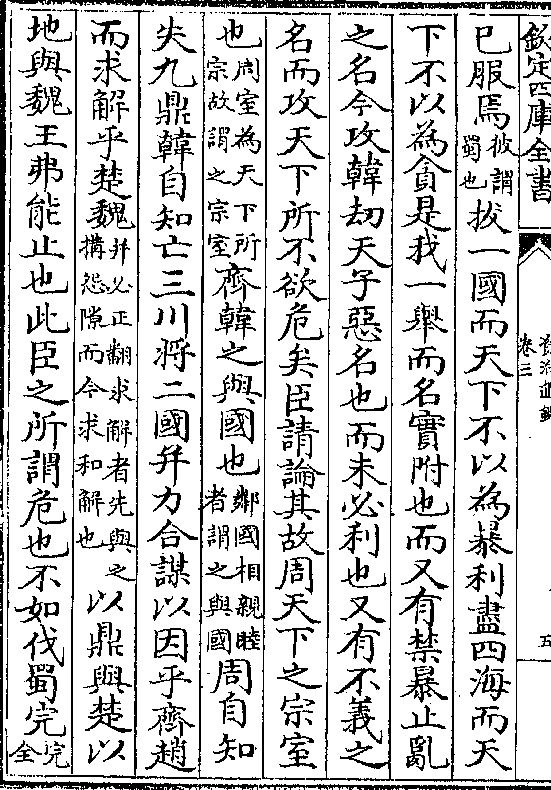 欽定四庫全書
資治通鑑
卷三
五
已服焉彼謂蜀也拔一國而天下不以為暴利盡四海而天
下不以為貪是我一舉而名實附也而又有禁暴止亂
之名今攻韓劫天子惡名也而未必利也又有不義之
名而攻天下所不欲危矣臣請論其故周天下之宗室
也周室為天下所宗故謂之宗室齊韓之與國也鄰國相親睦者謂之與國周自知
失九鼎韓自知亡三川將二國并力合謀以因乎齊趙
而求解乎楚魏并必正翻求解者先與之搆怨隙而今求和解也以鼎與楚以
地與魏王弗能止也此臣之所謂危也不如伐蜀完完全